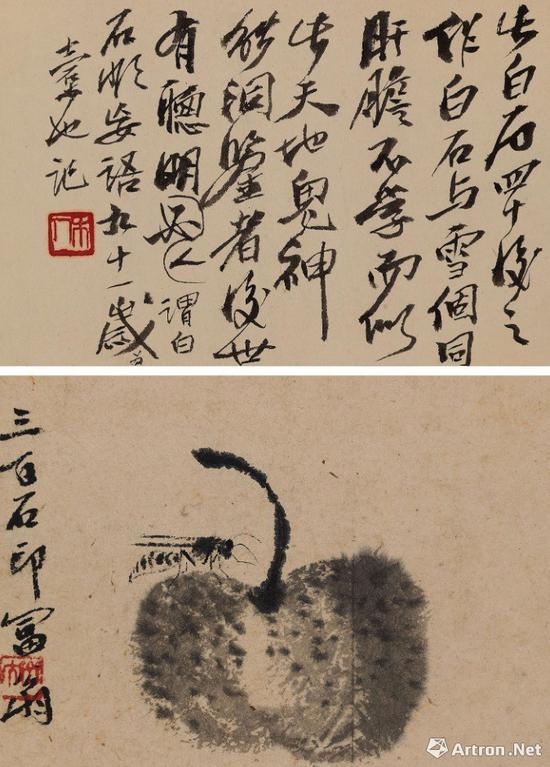 此白石四十後之
作白石与雪個同
肝膽不學而似
此天地鬼神
能洞鑒者後世
有聰明人謂白
石慚妄語九十一歲
也記
木人
三百石印富翁
Artron.Net